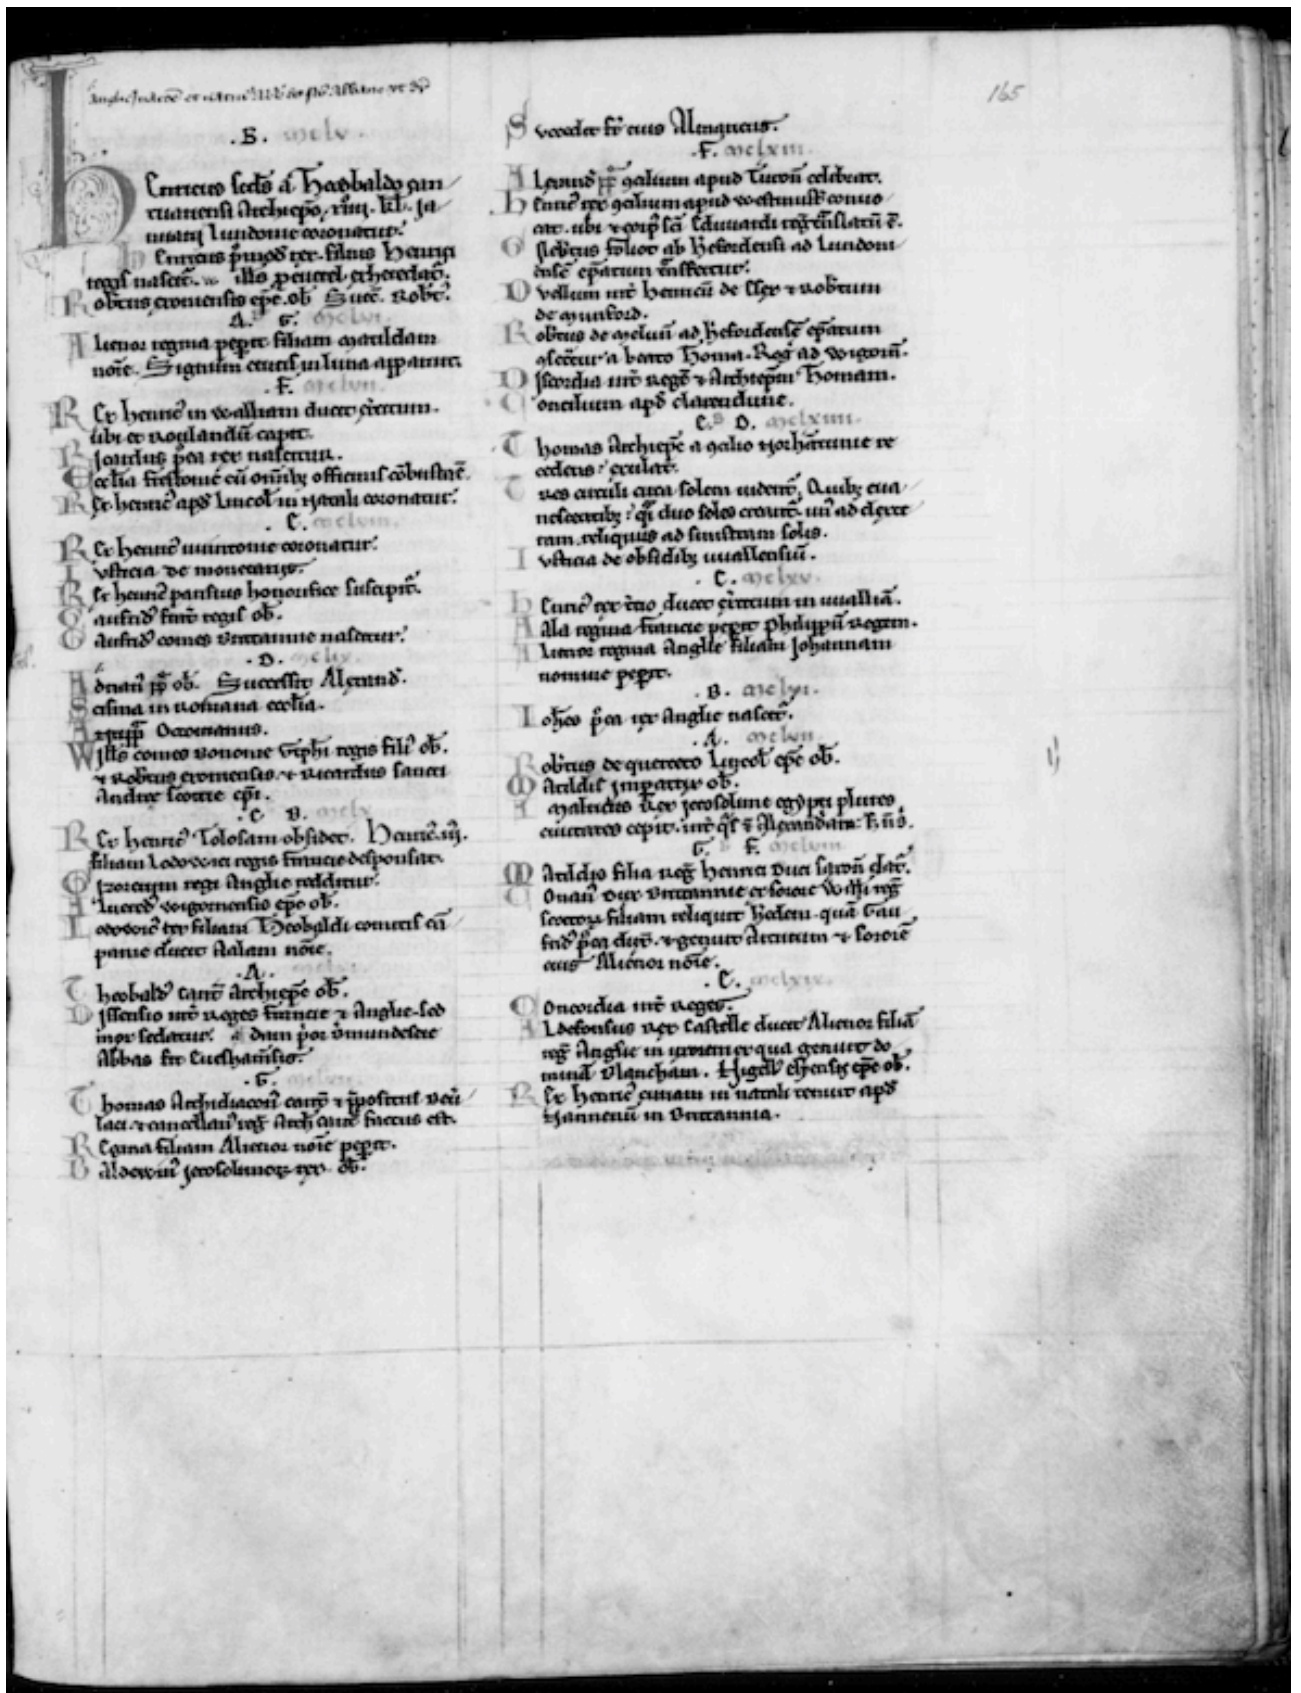 165
.B. mclv.
Henricus secds a Theobaldo can
tuariensi Archiepo, xiiij. kl. ja
nuarij Lundonie coronatur.
Henricus pmogd rex. filius Henrici
regis nascit. Wills peurel exheredat.
Robtus exoniensis epc ob. Succ. Robt.
A. G. mclvi.
Alienor regina peperit filiam Matildam
noie. Signum crucis in luna apparuit.
.F. mclvii.
Rex henric in Walliam ducit exercitum.
ubi et Roelandu capit.
Ricardus pea rex nascitur.
Ecclia cu omnibz officinis cobusta e.
Rex henric apd Lincol in Natali coronatur.
.E. mclviii.
Rex henric coronatur.
Iusticia de monetariis.
Rex henric parisius honorifice suscipit.
Gaufrid frat regis ob.
Gaufrid comes Brittannie nascitur.
.D. mclix.
Adrian pp ob. Successit Alexand.
Scisma in Romana ecclia.
Octouianus.
Wills comes Bononie Steph regis fili ob.
& Robtus exoniensis. & Ricardus sancti
Andree scotie epi.
.C. B. mclx.
Rex henric Tolosam obsidet. Henric. iij.
filiam Lodowici regis francie desponsat.
Gizorcium regi Anglie redditur.
Alured Wigorniensis epc ob.
Lodowic rex filiam Theobaldi comitis ca
panie ducit Aalam noie.
.A.
Theobald cant Archiepc ob.
Dissensio int Reges francie & Anglie. sed
mox sedatur. adam pior
Abbas fit Eueshamsis.
.G. mclxii.
Thomas Archidiacon cant & ppositus Beu
laci. & cancellari reg Arch cant factus est.
Regina filiam Alienor noie peperit.
Baldewin jerosolimoz rex ob.
Succedit fr eius Almaricus.
.F. mclxiii.
Alexand pp cciliu apud Turon celebrat.
Henric rex cciliu apud Westmust conuo
cat. ubi & corp sci Edwardi reg translatu e.
Gilebtus foliot ab hefordensi ad Lundoni
ensem epatum tnsfertur.
Duellum int henricu de Essex & Robtum
de Munford.
Robtus de melun ad hefordense epatum
csecratur a beato Thoma. Rog ad Wigorn.
Discordia int Rege & Archiepm Thomam.
Concilium apd clarendune.
E. D. mclxiiii.
Thomas Archiepc a ccilio Norhatunie re
cedens: exulat.
Tres circuli circa solem uident. Quibz eua
nescentibz: qsi duo soles creant. un ad dexte
ram. reliquus ad sinistram solis.
Iusticia de obsidibz uuallensiu.
.C. mclxv.
Henric rex tcio ducit exercitum in uualliā.
Aala regina francie peperit Philippu Regem.
Alienor regina Anglie filiam Johannam
nomine peperit.
.B. mclxvi.
Iohes pea rex Anglie nascit.
.A. mclxvii.
Robtus de querceto Lincol epc ob.
Matildis Imperatrix ob.
Almaricus Rex jerosolime egypti plures
ciuitates cepit. int qs & Alexandriam.
G. F. mclxviii.
Matildis filia reg henrici duci saxon dat.
Conan dux Brittannie ex sorore Willi reg
scottoz filiam reliquit heredem. qua Gau
frid pea duxit. & genuit Arturum & sorore
eius Alienor noie.
.E. mclxix.
Concordia int Reges.
Aldefonsus rex Castelle ducit Alienor filia
reg Anglie in uxorem ex qua genuit do
mina Blancham. Nigell elyensis epc ob.
Rex henric curiam in natali tenuit apd
Nannetu in Brittannia.